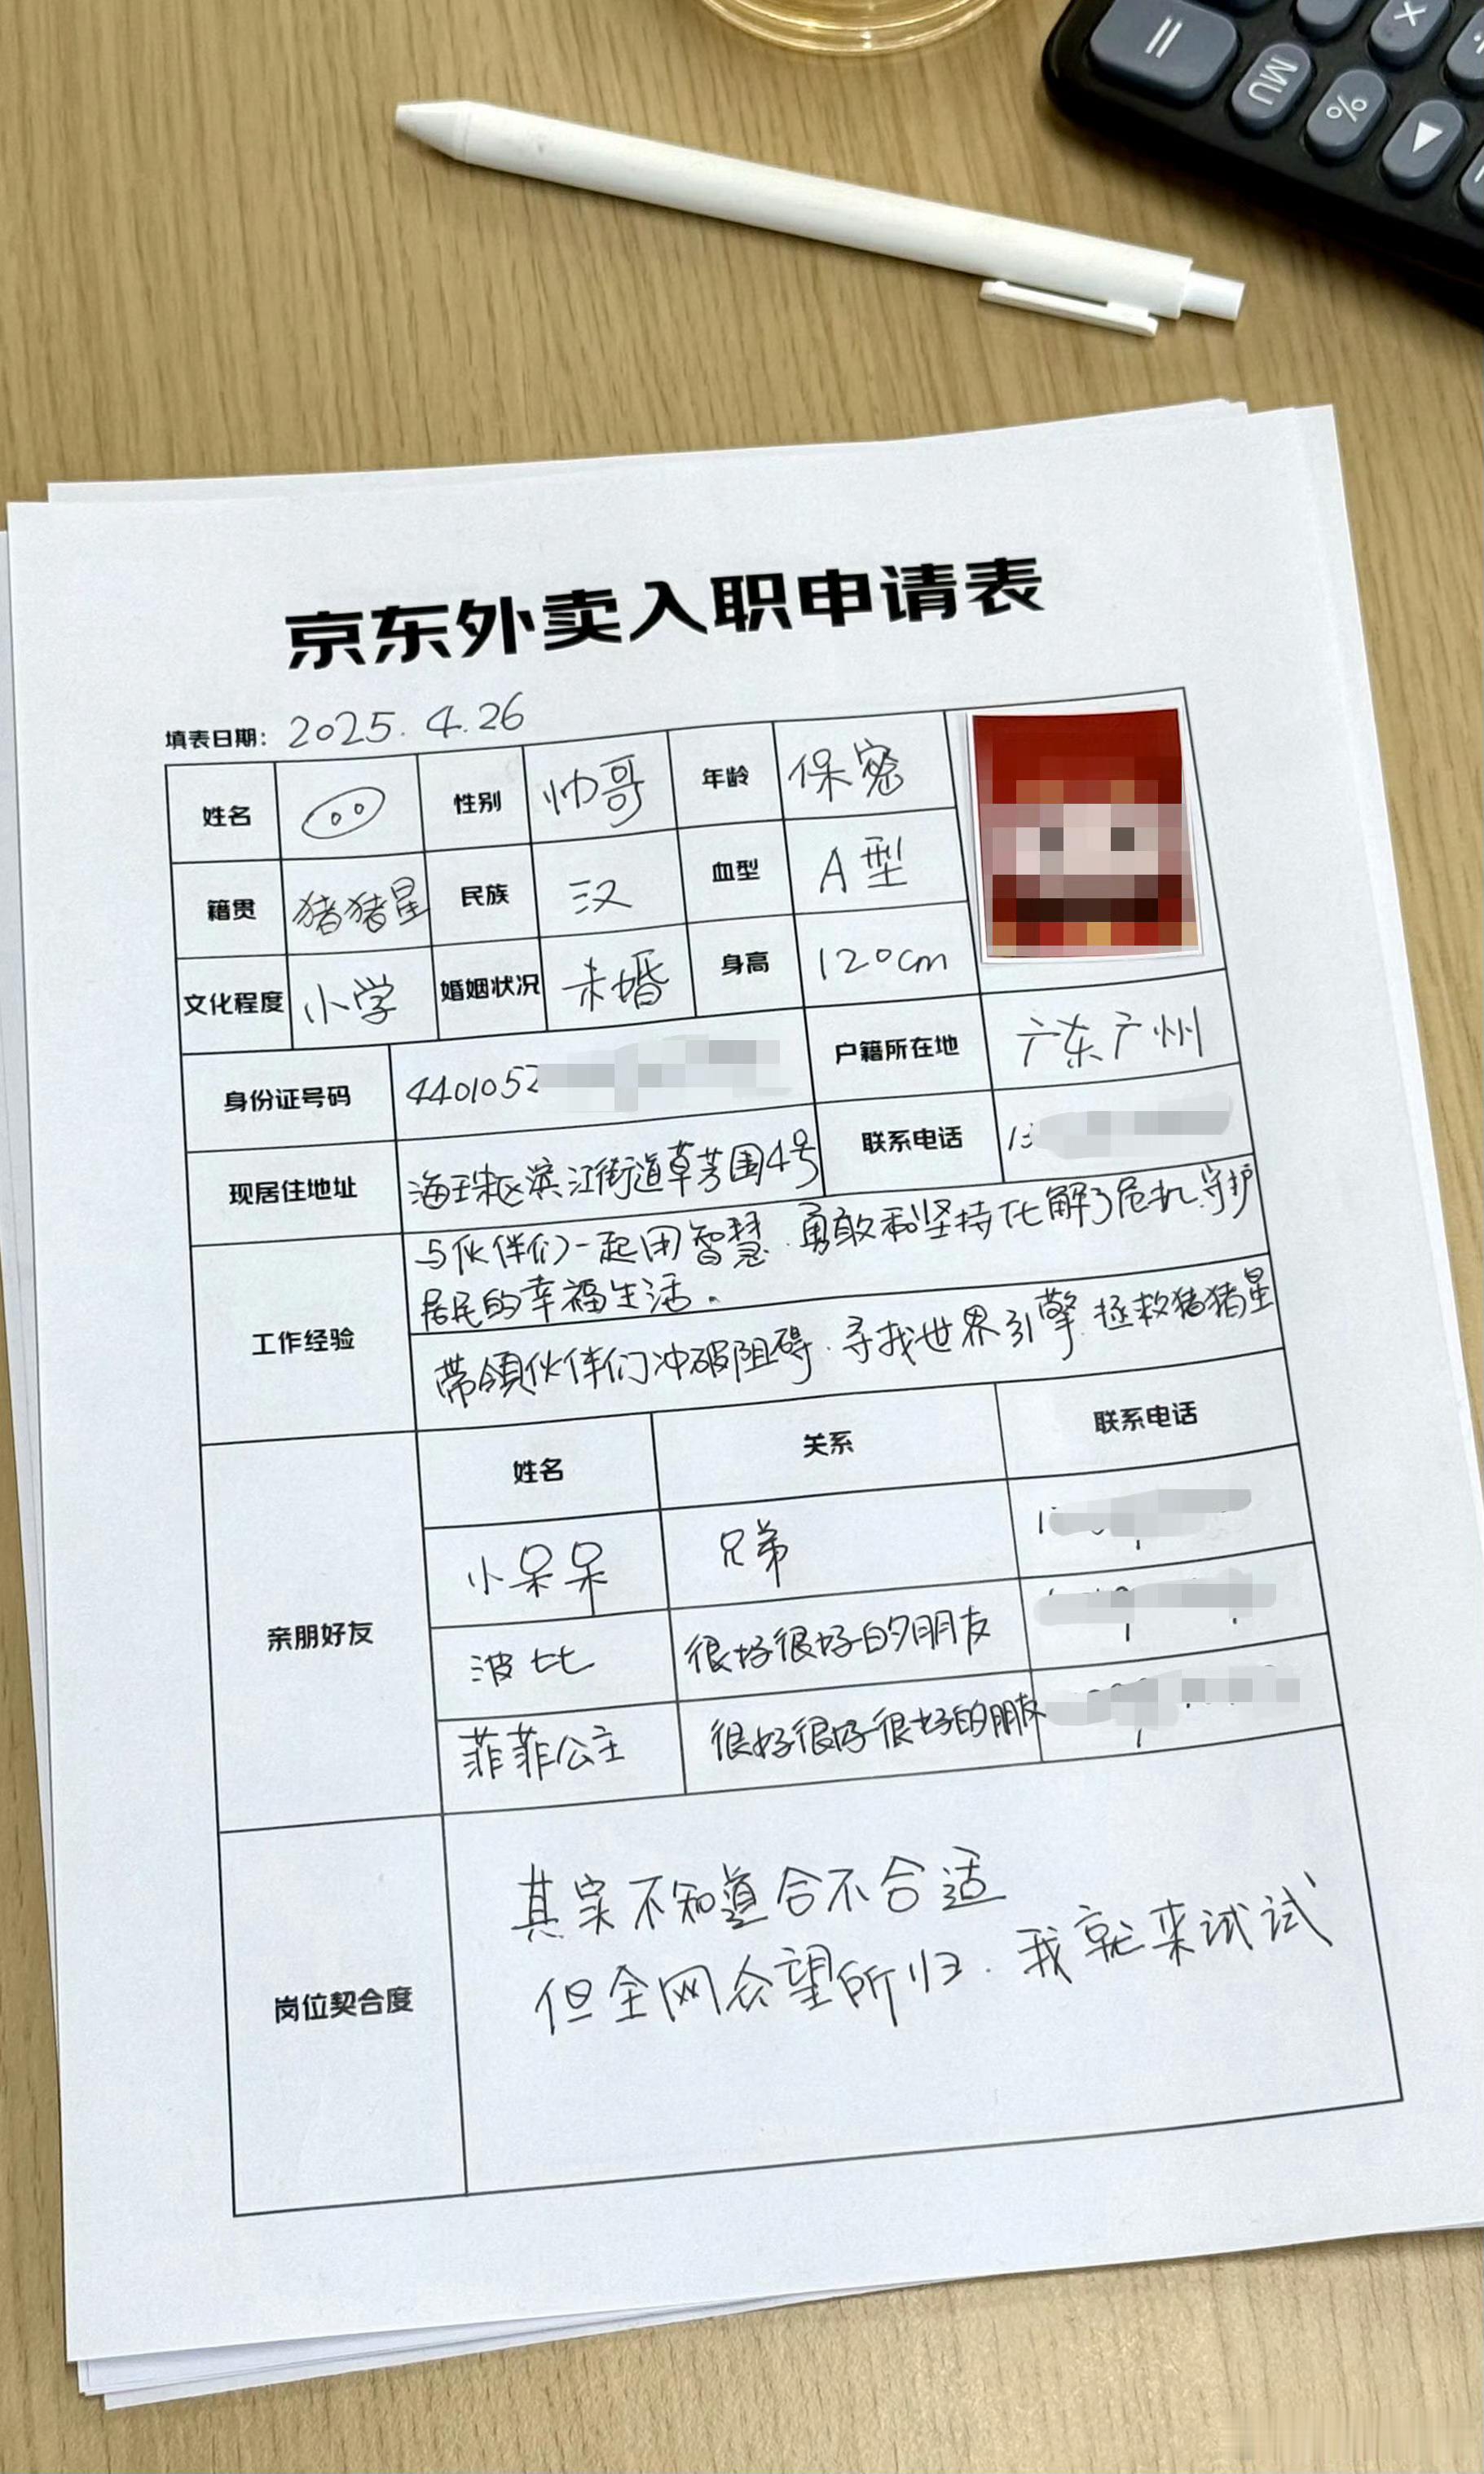 京东外卖入职申请表
填表日期: 2025.4.26
姓名 性别 帅哥 年龄 保密
籍贯 猪猪星 民族 汉 血型 A型
文化程度 小学 婚姻状况 未婚 身高 120cm
身份证号码 4401052 户籍所在地 广东广州
现居住地址 海珠区滨江街道草芳围4号 联系电话 13
工作经验
与伙伴们一起用智慧、勇敢和坚持化解了危机、守护
居民的幸福生活。
带领伙伴们冲破阻碍、寻找世界引擎、拯救猪猪星
亲朋好友
姓名 关系 联系电话
小呆呆 兄弟 1
波比 很好很好的朋友
菲菲公主 很好很好很好的朋友
岗位契合度
其实不知道合不合适
但全网众望所归、我就来试试
= MU % × ▲